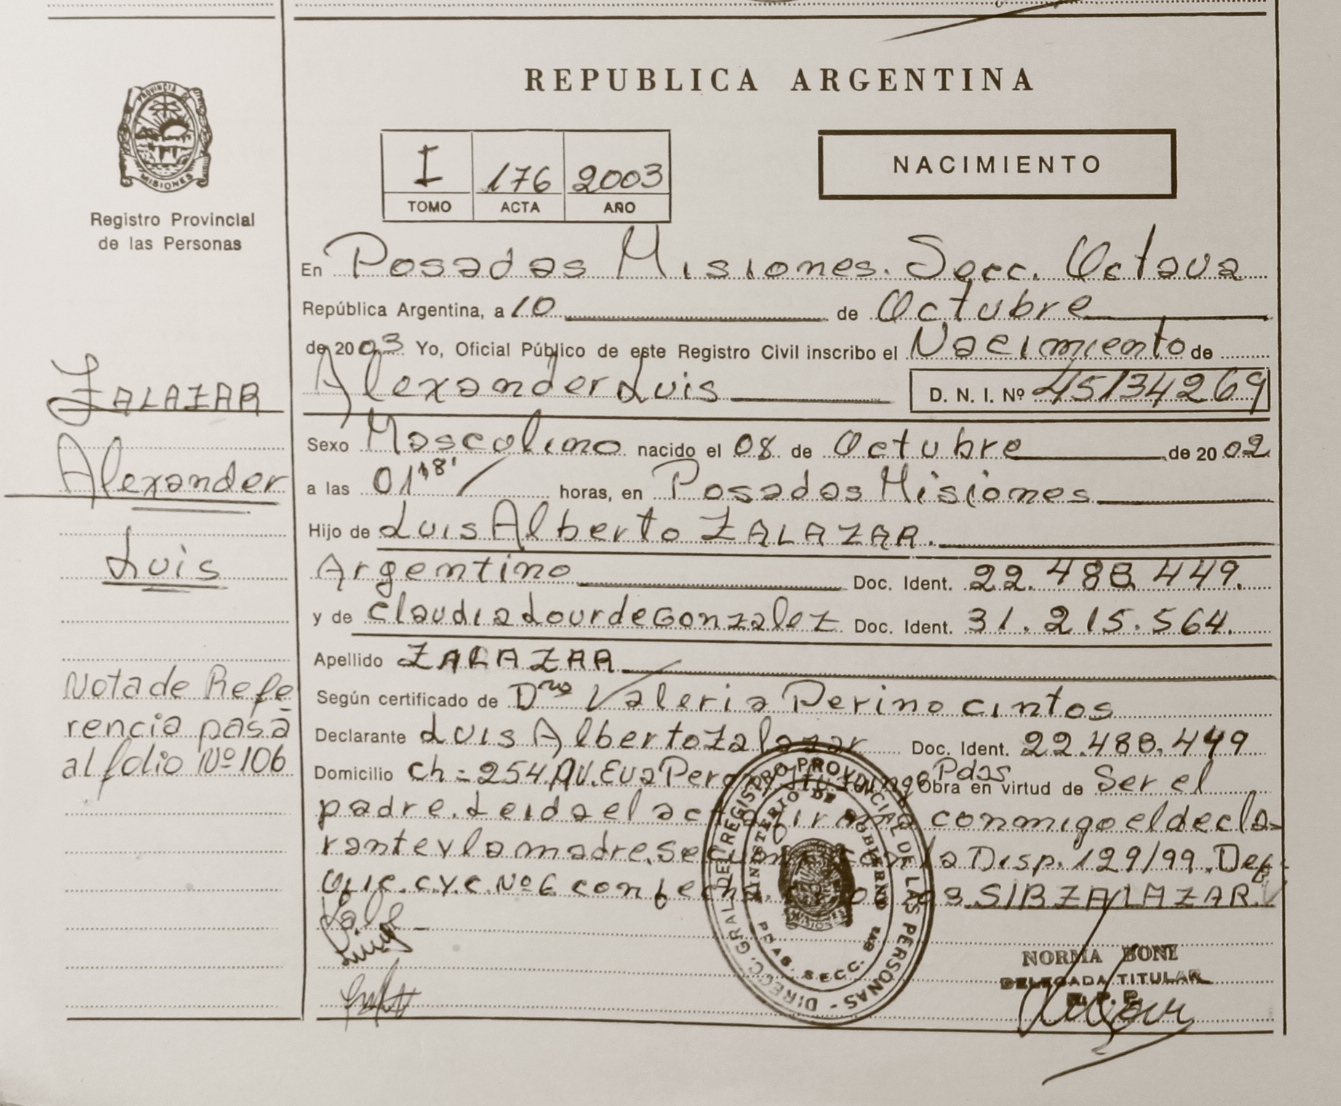 REPUBLICA ARGENTINA
PROVINCIA DE MISIONES
Registro Provincial
de las Personas
I 176 2003
TOMO ACTA AÑO
NACIMIENTO
En Posadas Misiones. Secc. Octava
República Argentina, a 10 de Octubre
de 2003 Yo, Oficial Público de este Registro Civil inscribo el Nacimiento de
Alexander Luis D. N. I. Nº 45134269
Sexo Masculino nacido el 08 de Octubre de 2002
a las 01 18' horas, en Posadas Misiones
Hijo de Luis Alberto ZALAZAR.
Argentino Doc. Ident. 22.488.449.
y de Claudia Lourde Gonzalez Doc. Ident. 31.215.564.
Apellido ZALAZAR
Según certificado de Dra Valeria Perino cintos
Declarante Luis Alberto Zalazar Doc. Ident. 22.488.449
Domicilio Ch = 254 AV. Eva Peron Pdas Obra en virtud de Ser el
padre. Leida el acta firma conmigo el decla-
rante y la madre. Se la Disp. 129/99. Def.
c.y.c. Nº 6 con fecha S/B ZALAZAR.
Vale
ZALAZAR
Alexander
Luis
Nota de Refe
rencia pasa
al folio Nº 106
DIRECC. GRAL. DEL REGISTRO PROVINCIAL DE LAS PERSONAS
MINISTERIO DE GOBIERNO
PDAS. SECC. 8va
MISIONES
NORMA BONI
DELEGADA TITULAR
R.P.P.